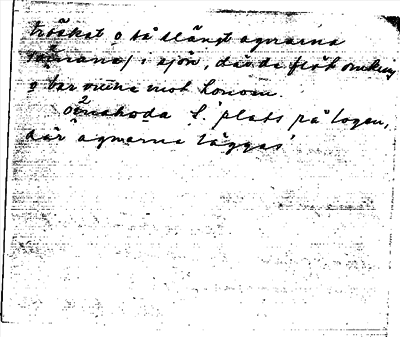 tröskat o då slängt agnarna
i sjön, då de flöt omkring
o bar emot honom.
S. plats på logen,
där agnarna läggas